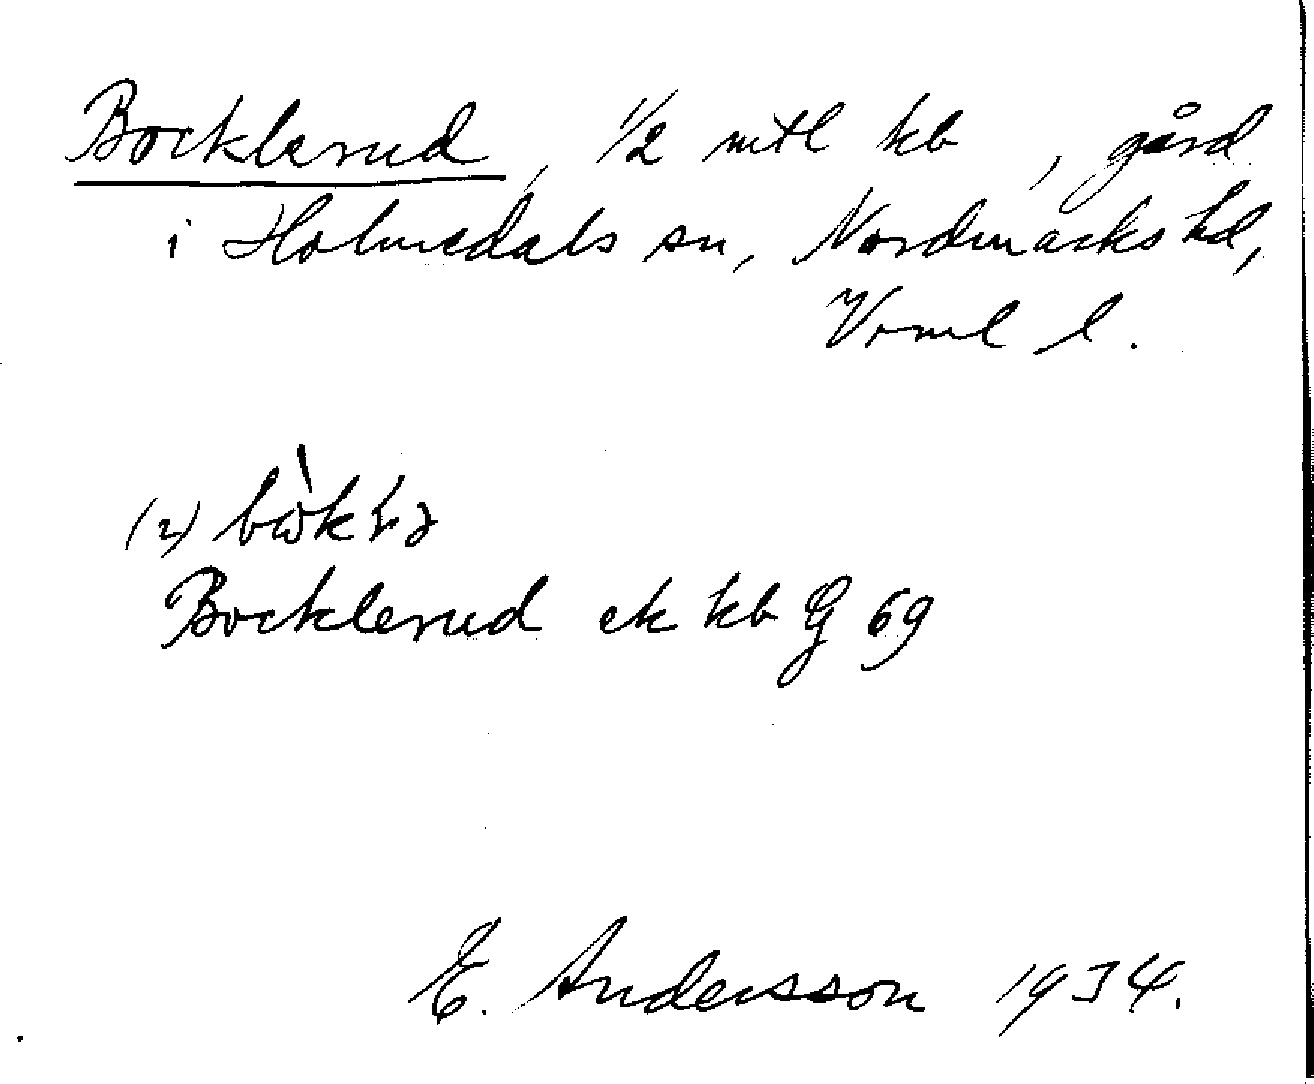 Bocklerud, 1/2 mtl kb, gård
i Holmedals sn, Nordmarks hd,
Vrml l.
(2)
Bocklerud ek kb G 69
E. Andersson 1934.